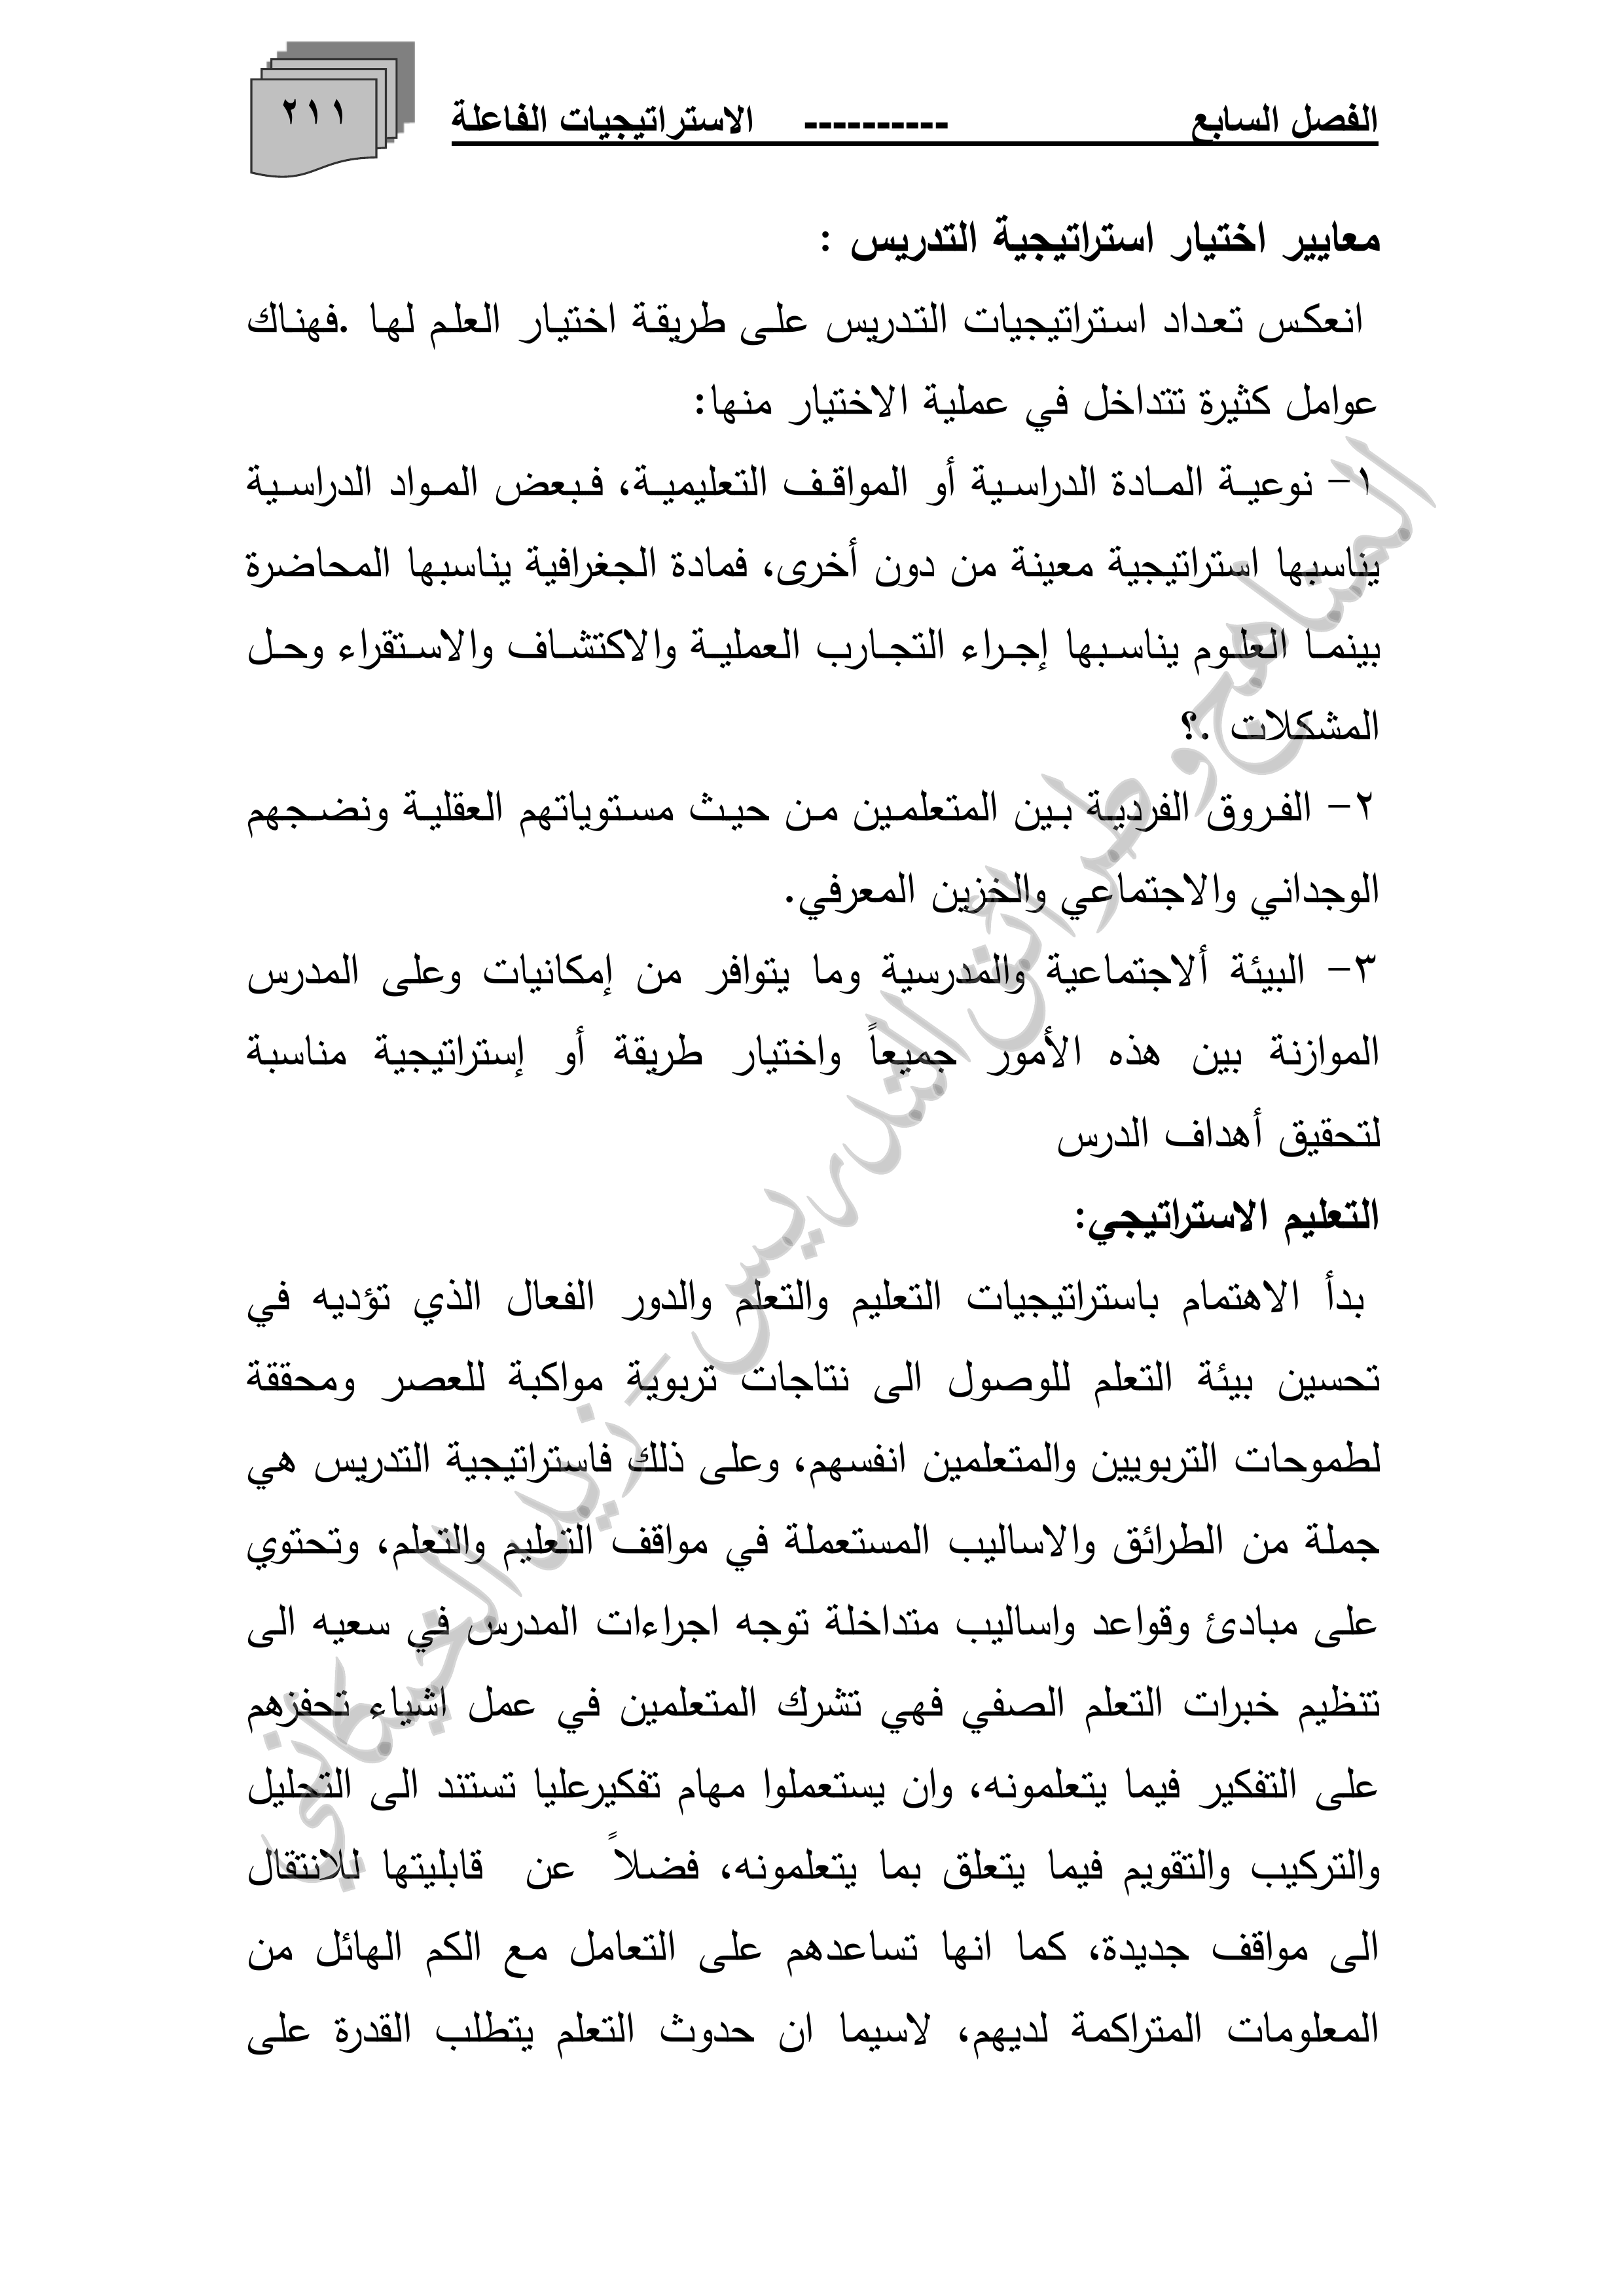 الفصل السابع ---------- الاستراتيجيات الفاعلة ٢١١
معايير اختيار استراتيجية التدريس :
انعكس تعداد استراتيجيات التدريس على طريقة اختيار العلم لها .فهناك
عوامل كثيرة تتداخل في عملية الاختيار منها:
١- نوعية المادة الدراسية أو المواقف التعليمية، فبعض المواد الدراسية
يناسبها استراتيجية معينة من دون أخرى، فمادة الجغرافية يناسبها المحاضرة
بينما العلوم يناسبها إجراء التجارب العملية والاكتشاف والاستقراء وحل
المشكلات .؟
٢- الفروق الفردية بين المتعلمين من حيث مستوياتهم العقلية ونضجهم
الوجداني والاجتماعي والخزين المعرفي.
٣- البيئة ألاجتماعية والمدرسية وما يتوافر من إمكانيات وعلى المدرس
الموازنة بين هذه الأمور جميعاً واختيار طريقة أو إستراتيجية مناسبة
لتحقيق أهداف الدرس
التعليم الاستراتيجي:
بدأ الاهتمام باستراتيجيات التعليم والتعلم والدور الفعال الذي تؤديه في
تحسين بيئة التعلم للوصول الى نتاجات تربوية مواكبة للعصر ومحققة
لطموحات التربويين والمتعلمين انفسهم، وعلى ذلك فاستراتيجية التدريس هي
جملة من الطرائق والاساليب المستعملة في مواقف التعليم والتعلم، وتحتوي
على مبادئ وقواعد واساليب متداخلة توجه اجراءات المدرس في سعيه الى
تنظيم خبرات التعلم الصفي فهي تشرك المتعلمين في عمل اشياء تحفزهم
على التفكير فيما يتعلمونه، وان يستعملوا مهام تفكيرعليا تستند الى التحليل
والتركيب والتقويم فيما يتعلق بما يتعلمونه، فضلاً عن قابليتها للانتقال
الى مواقف جديدة، كما انها تساعدهم على التعامل مع الكم الهائل من
المعلومات المتراكمة لديهم، لاسيما ان حدوث التعلم يتطلب القدرة على
المناهج وطرائق التدريس - زيد الخيكاني